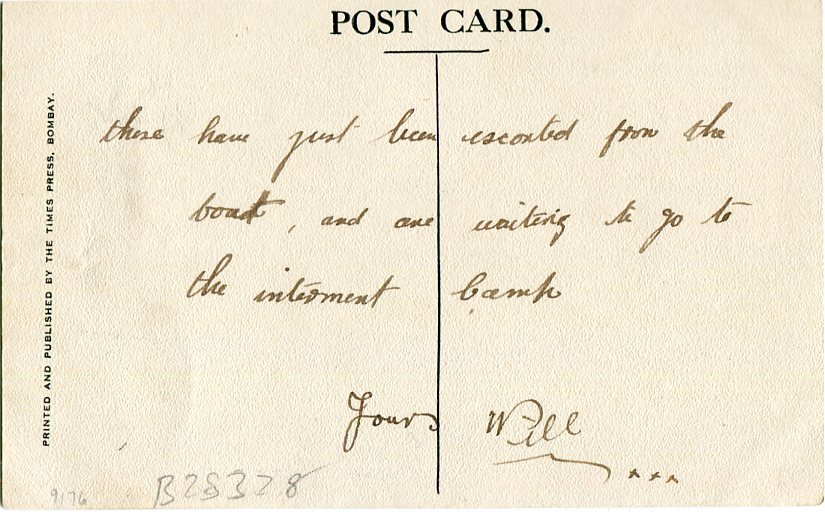 POST CARD.
PRINTED AND PUBLISHED BY THE TIMES PRESS, BOMBAY.
these have just been escorted from the
boat, and are waiting to go to
the interment Camp
Yours Will
x x x
9176
B28328